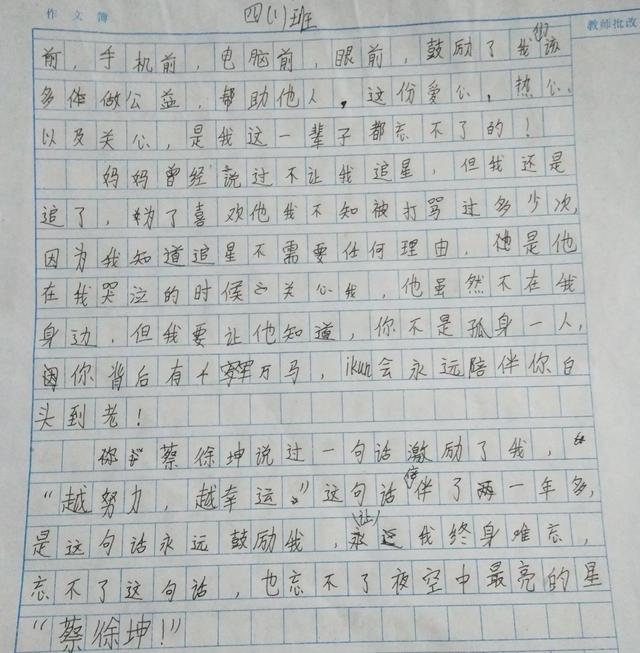 四(1)班
作文簿
教师批改
前，手机前，电脑前，眼前，鼓励了我们该
多作做公益，帮助他人，这份爱心，热心
以及关心，是我这一辈子都忘不了的！
妈妈曾经说过不让我追星，但我还是
追了，为了喜欢他我不知被打骂过多少次，
因为我知道追星不需要任何理由，他是他
在我哭泣的时候关心我，他虽然不在我
身边，但我要让他知道，你不是孤身一人，
因你背后有千军万马，ikun会永远陪伴你白
头到老！
你蔡徐坤说过一句话激励了我，
“越努力，越幸运。”这句话伴了两一年多，
是这句话永远鼓励我，让我终身难忘，
忘不了这句话，也忘不了夜空中最亮的星
“蔡徐坤！”